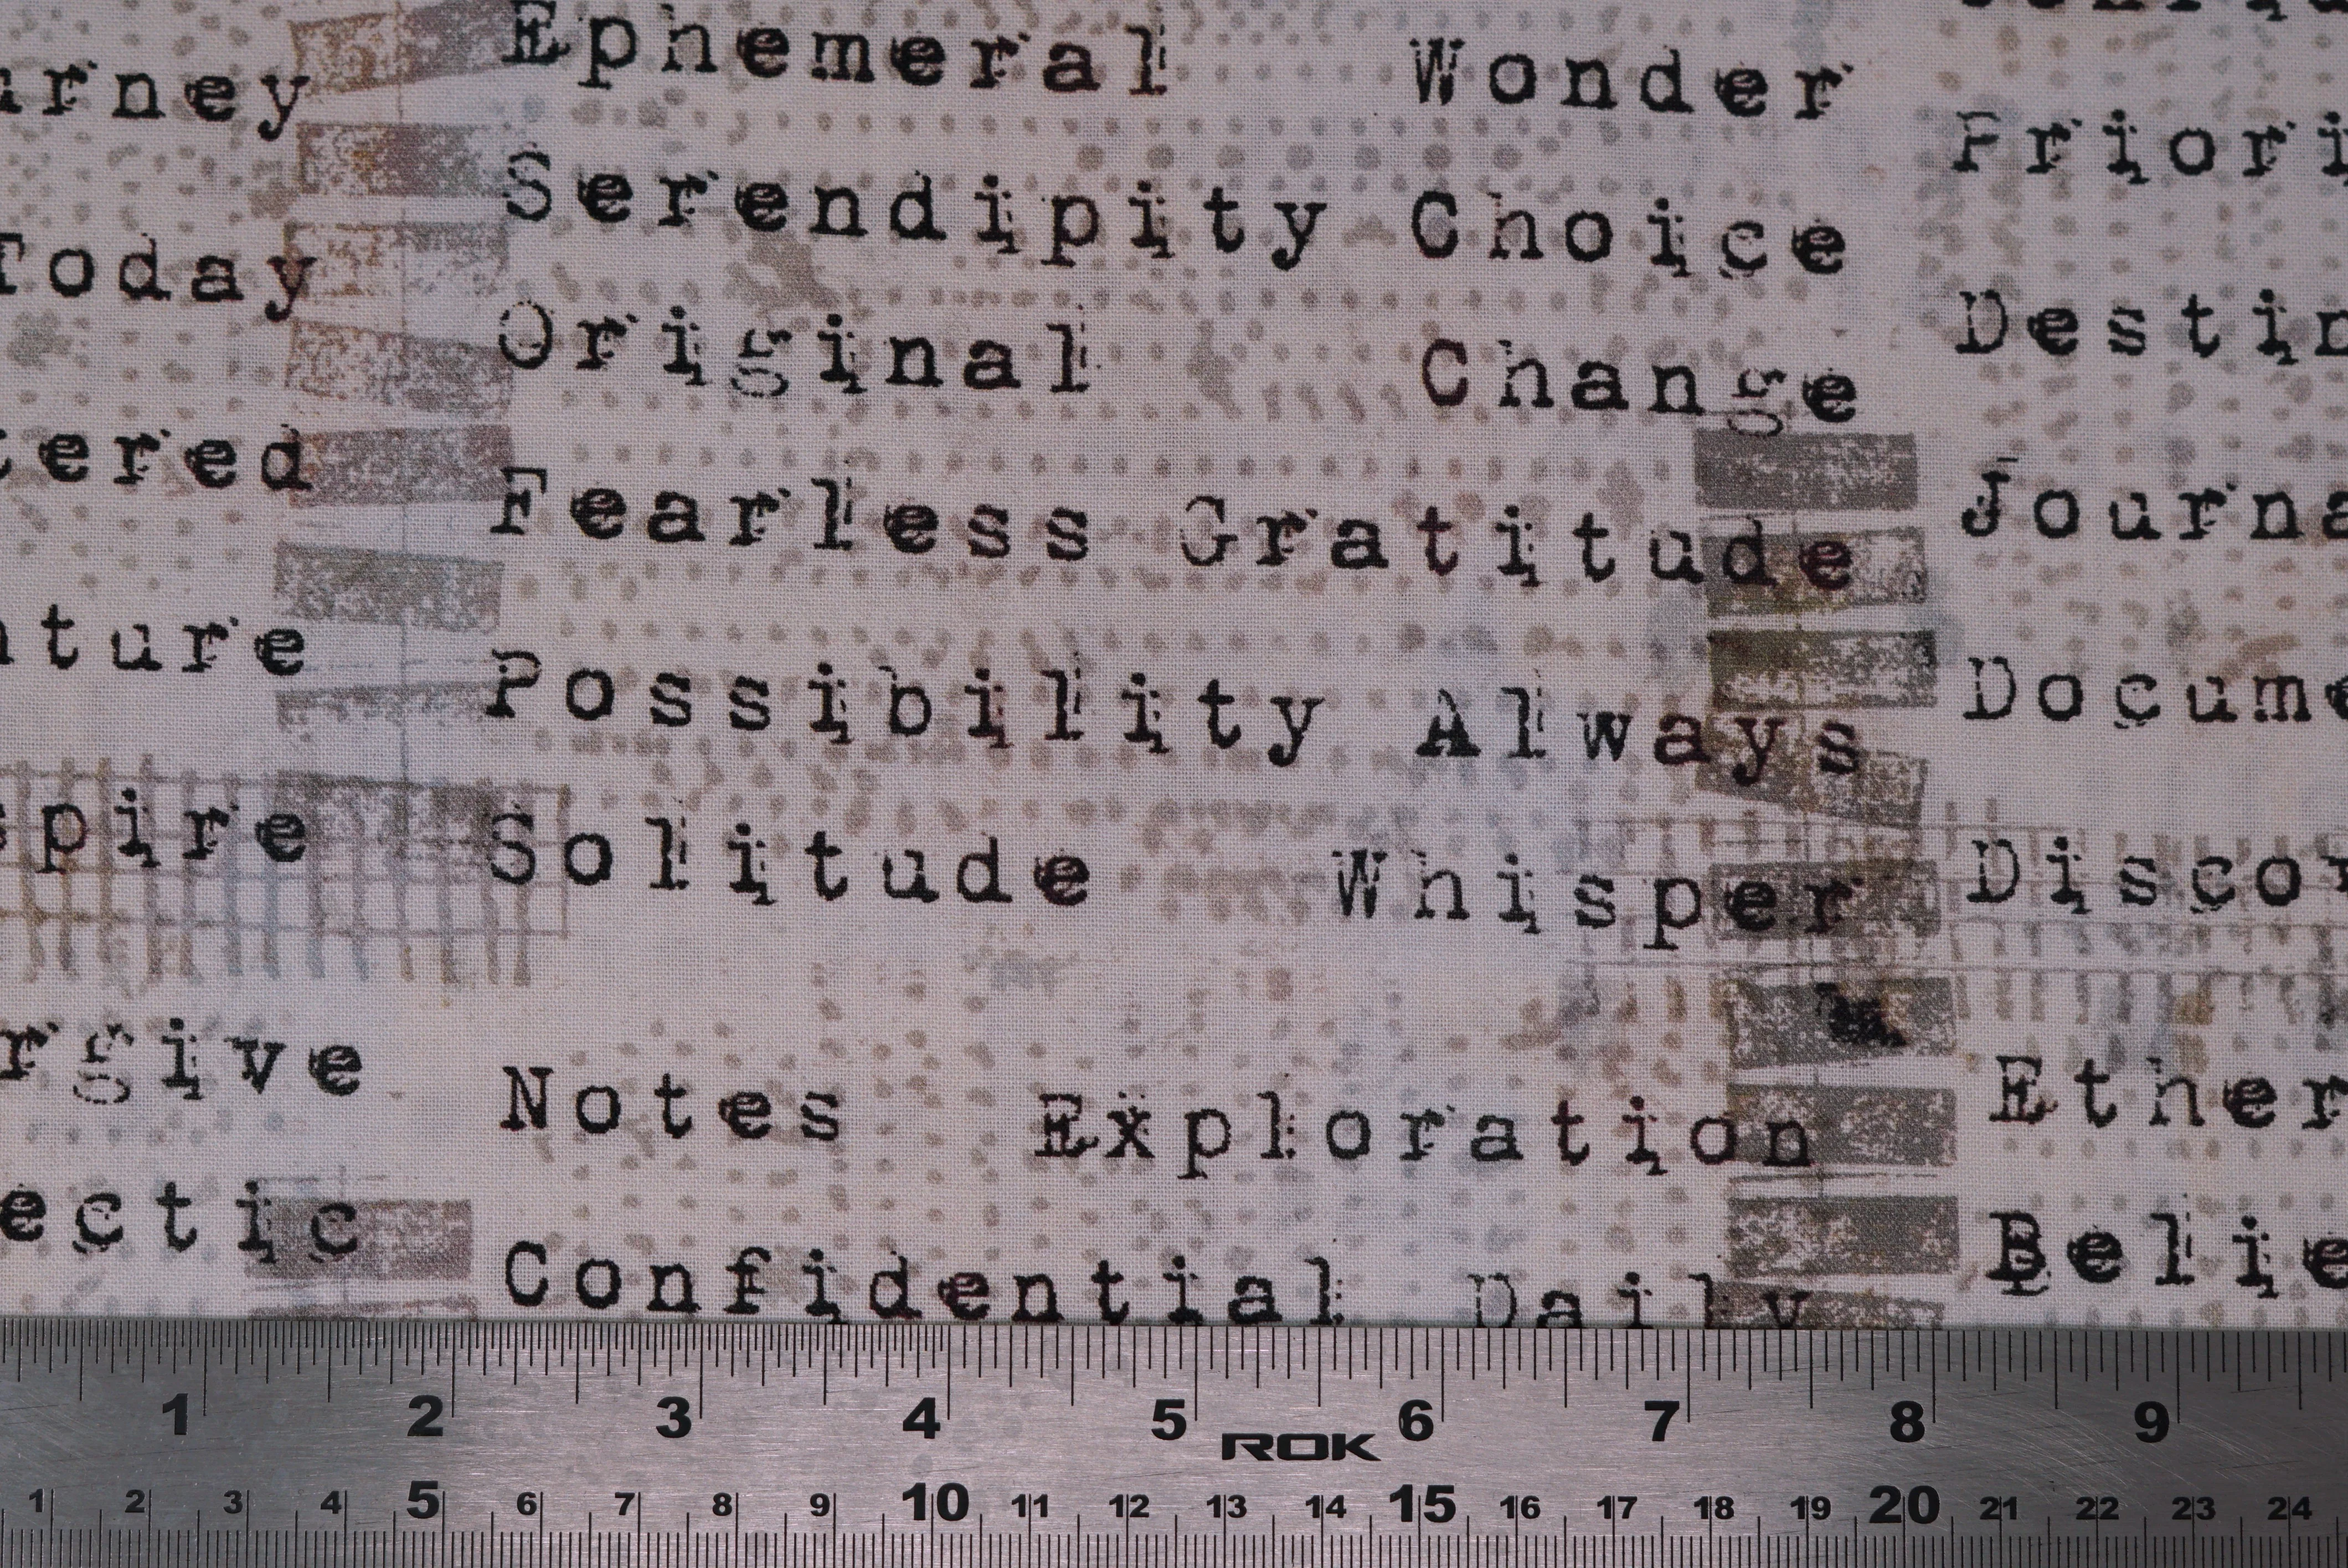 Ephemeral Wonder
urney Priori
Serendipity Choice
Today Destin
Original Change
tered Journa
Fearless Gratitude
ture Docume
Possibility Always
spire Discov
Solitude Whisper
rgive Ether
Notes Exploration
ectic Belie
Confidential Daily
1 2 3 4 5 6 7 8 9
ROK
1 2 3 4 5 6 7 8 9 10 11 12 13 14 15 16 17 18 19 20 21 22 23 24